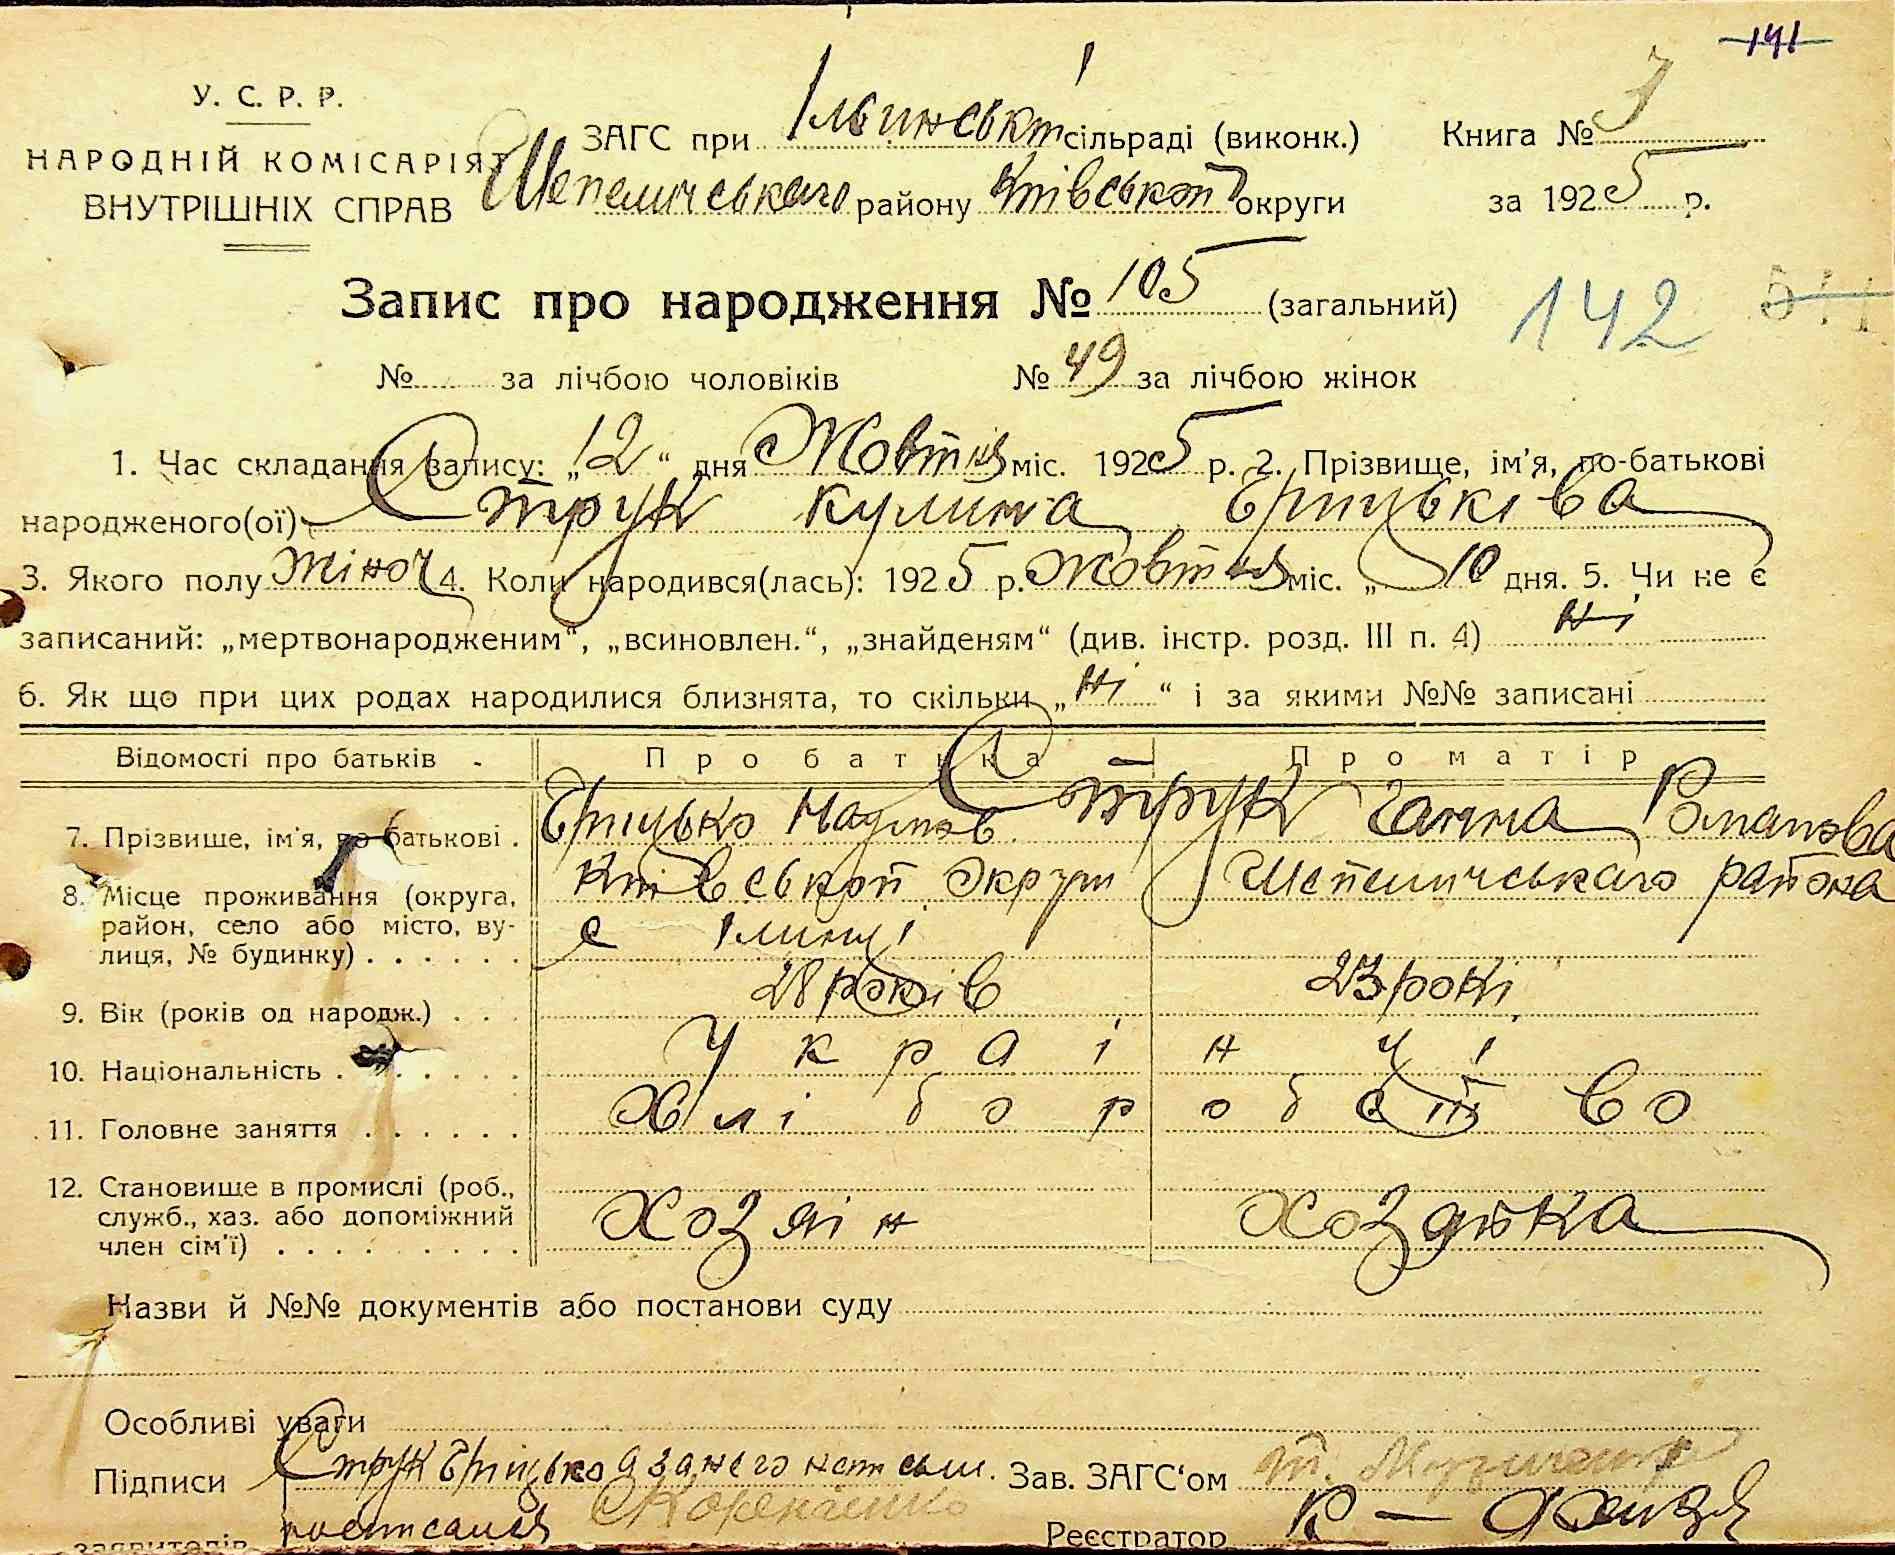 141
У. С. Р. Р.
НАРОДНІЙ КОМІСАРІЯТ
ВНУТРІШНІХ СПРАВ
ЗАГС при Ільинські сільраді (виконк.)
Шепеличського району Київської округи
Книга № 3
за 1925 р.
Запис про народження № 105 (загальний)
142
№ за лічбою чоловіків № 49 за лічбою жінок
1. Час складання запису: „12“ дня Жовтня міс. 1925 р. 2. Прізвище, ім'я, по-батькові
народженого(ої) Струк Кулина Грицьківа
3. Якого полу жіноч 4. Коли народився(лась): 1925 р. Жовтня міс. „ 10 дня. 5. Чи не є
записаний: „мертвонародженим“, „всиновлен.“, „знайденям“ (див. інстр. розд. III п. 4) ні
6. Як що при цих родах народилися близнята, то скільки „ні“ і за якими №№ записані
Відомості про батьків - Про батька Про матір
7. Прізвище, ім'я, по батькові . Грицько Наумов Струк Ганна Романова
8. Місце проживання (округа, Київської округи Шепеличського района
район, село або місто, ву-
лиця, № будинку) . . . . . . с Ілинці
9. Вік (років од народж.) . . . 28 років 23 роки
10. Національність . . . . . . . Українці
11. Головне заняття . . . . . . Хліборобство
12. Становище в промислі (роб.,
служб., хаз. або допоміжний Хозяін Хозяйка
член сім'ї) . . . . . . . . .
Назви й №№ документів або постанови суду
Особливі уваги
Підписи Струк Грицько а за него неписьм.
Зав. ЗАГС'ом
заявителів росписался
Реєстратор